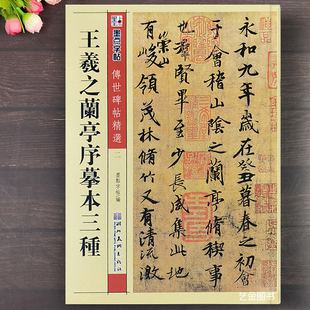 墨点字帖
傳世碑帖精選
王羲之蘭亭序摹本三種
墨點字帖 編
永和九年歲在癸丑暮春之初會
于會稽山陰之蘭亭脩稧事
也羣賢畢至少長咸集此地
有崇山峻領茂林脩竹又有清流激
艺金图书